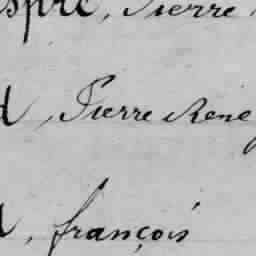 spre, Pierre
, Pierre René
, françois